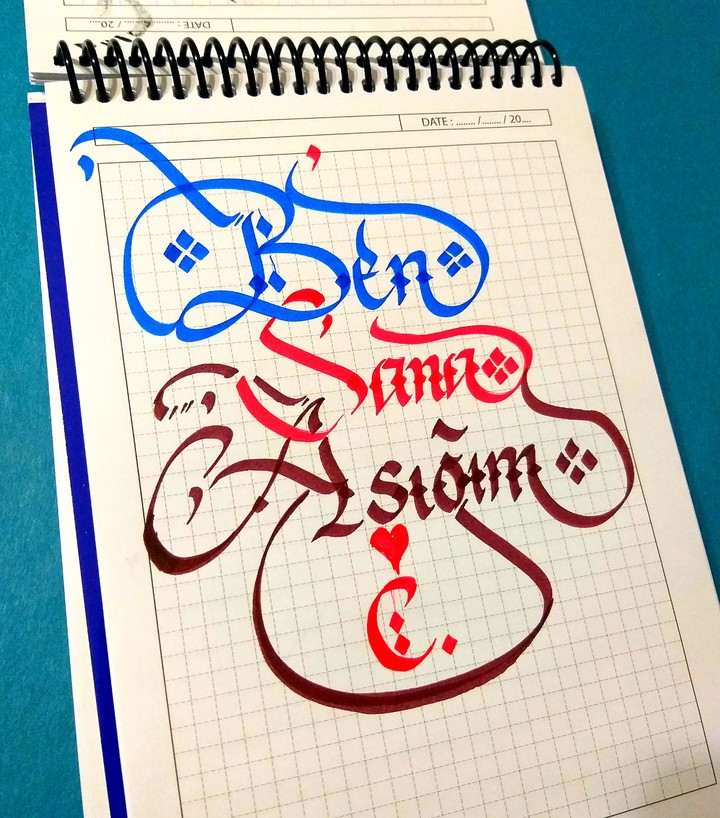 DATE : ....... / ....... / 20....
DATE : ....... / ....... / 20....
Ben
Sana
Asıõım
C.